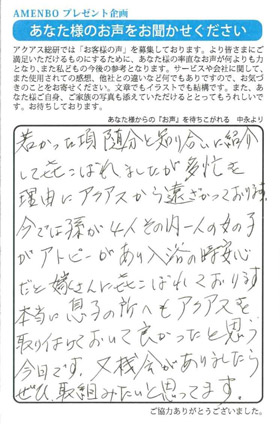 AMENBO プレゼント企画
あなた様のお声をお聞かせください
アクアス総研では「お客様の声」を募集しております。より皆さまにご
満足いただけるものにするために、あなた様の率直なお声が何よりも力
となり、また私どもの今後の参考となります。サービスや会社に関して、
また使用されての感想、他社との違いなど何でもありですので、お気づ
きのことをお寄せください。文章でもイラストでも結構です。また、あ
なた様ご自身、ご家族の写真も添えていただけるととってもうれしいで
す。お待ちしております。
あなた様からの「お声」を待ちこがれる 中永より
若かった頃 随分と知り合いに紹介
して㐂こばれましたが多忙を
理由にアクアスから遠ざかっております
今では孫が4人その内一人の女の子
がアトピーがあり入浴の時安心
だと嫁さんに㐂こばれております
本当に息子の所へもアクアスを
取り付けておいて良かったと思う
今日です。又機会がありましたら
ぜひ取組みたいと思ってます。
ご協力ありがとうございました。